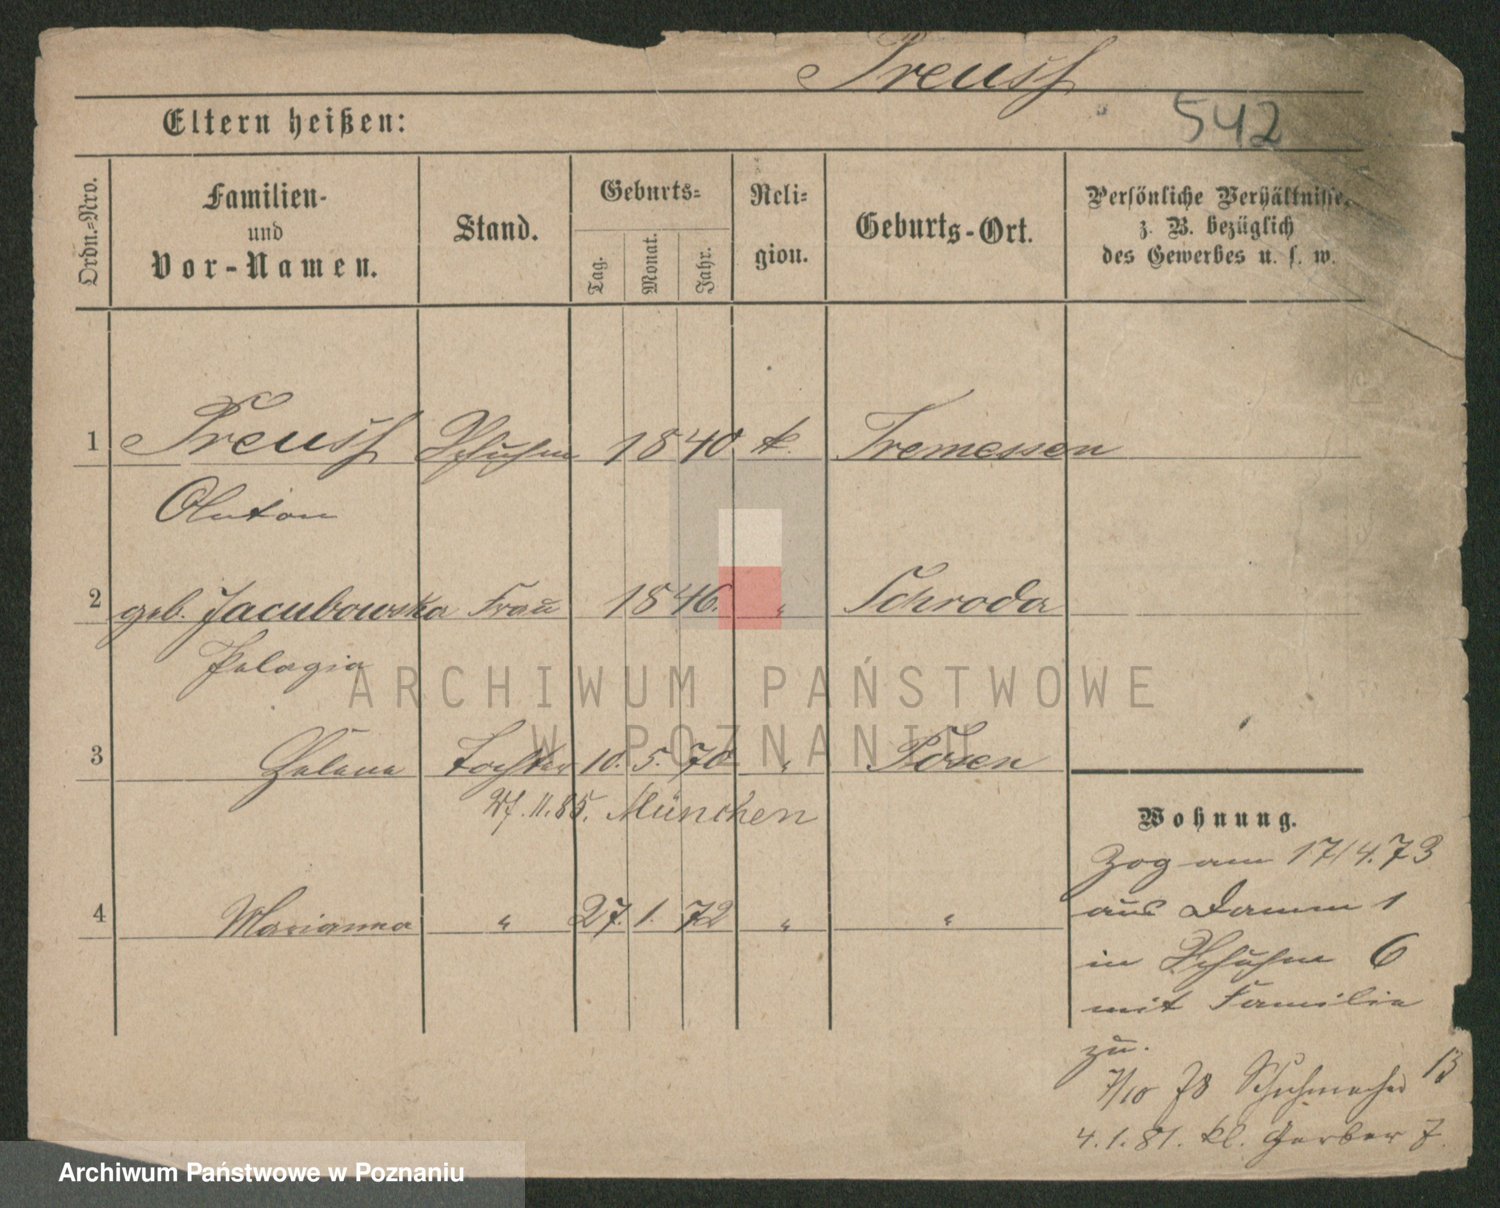 Preuss
542
Eltern heißen:
Ordn.-Nro.
Familien-
und
Vor-Namen.
Stand.
Geburts-
Tag.
Monat.
Jahr.
Reli-
gion.
Geburts-Ort.
Persönliche Verhältnisse,
z. B. bezüglich
des Gewerbes u. s. w.
1 Preuss Schuhm 1840 k. Tremessen
Anton
2 geb. Jacubowska Frau 1846. " Schroda
Pelagia
3 Helena Tochter 10. 5. 70 " Posen
27.11.85. München
4 Marianna " 27. 1. 72 " "
Wohnung.
Zog am 17/4.73
aus Damm 1
in Schuhm 6
mit Familie
zu.
7/10 78 Schuhmacher 13
4.1.81. kl. Gerber 7.
ARCHIWUM PAŃSTWOWE
W POZNANIU
Archiwum Państwowe w Poznaniu